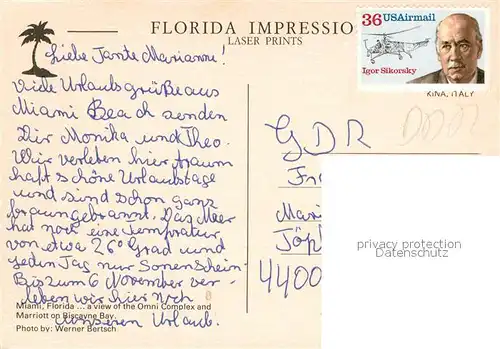 FLORIDA IMPRESSIO
LASER PRINTS
36 USAirmail
Igor Sikorsky
RINA, ITALY
Liebe Tante Marianne!
Viele Urlaubsgrüße aus
Miami Beach senden
Dir Monika und Theo.
Wir verleben hier traum
hafte schöne Urlaubstage
und sind schon ganz
braungebrannt. Das Meer
hat noch eine Temperatur
von etwa 26° Grad und
jeden Tag nur Sonnenschein
Bis zum 6 November ver-
leben wir hier noch
unseren Urlaub.
GDR
Fr
Mari
Jöp
4400
DDR
privacy protection
Datenschutz
Miami, Florida ... a view of the Omni Complex and
Marriott on Biscayne Bay.
Photo by: Werner Bertsch